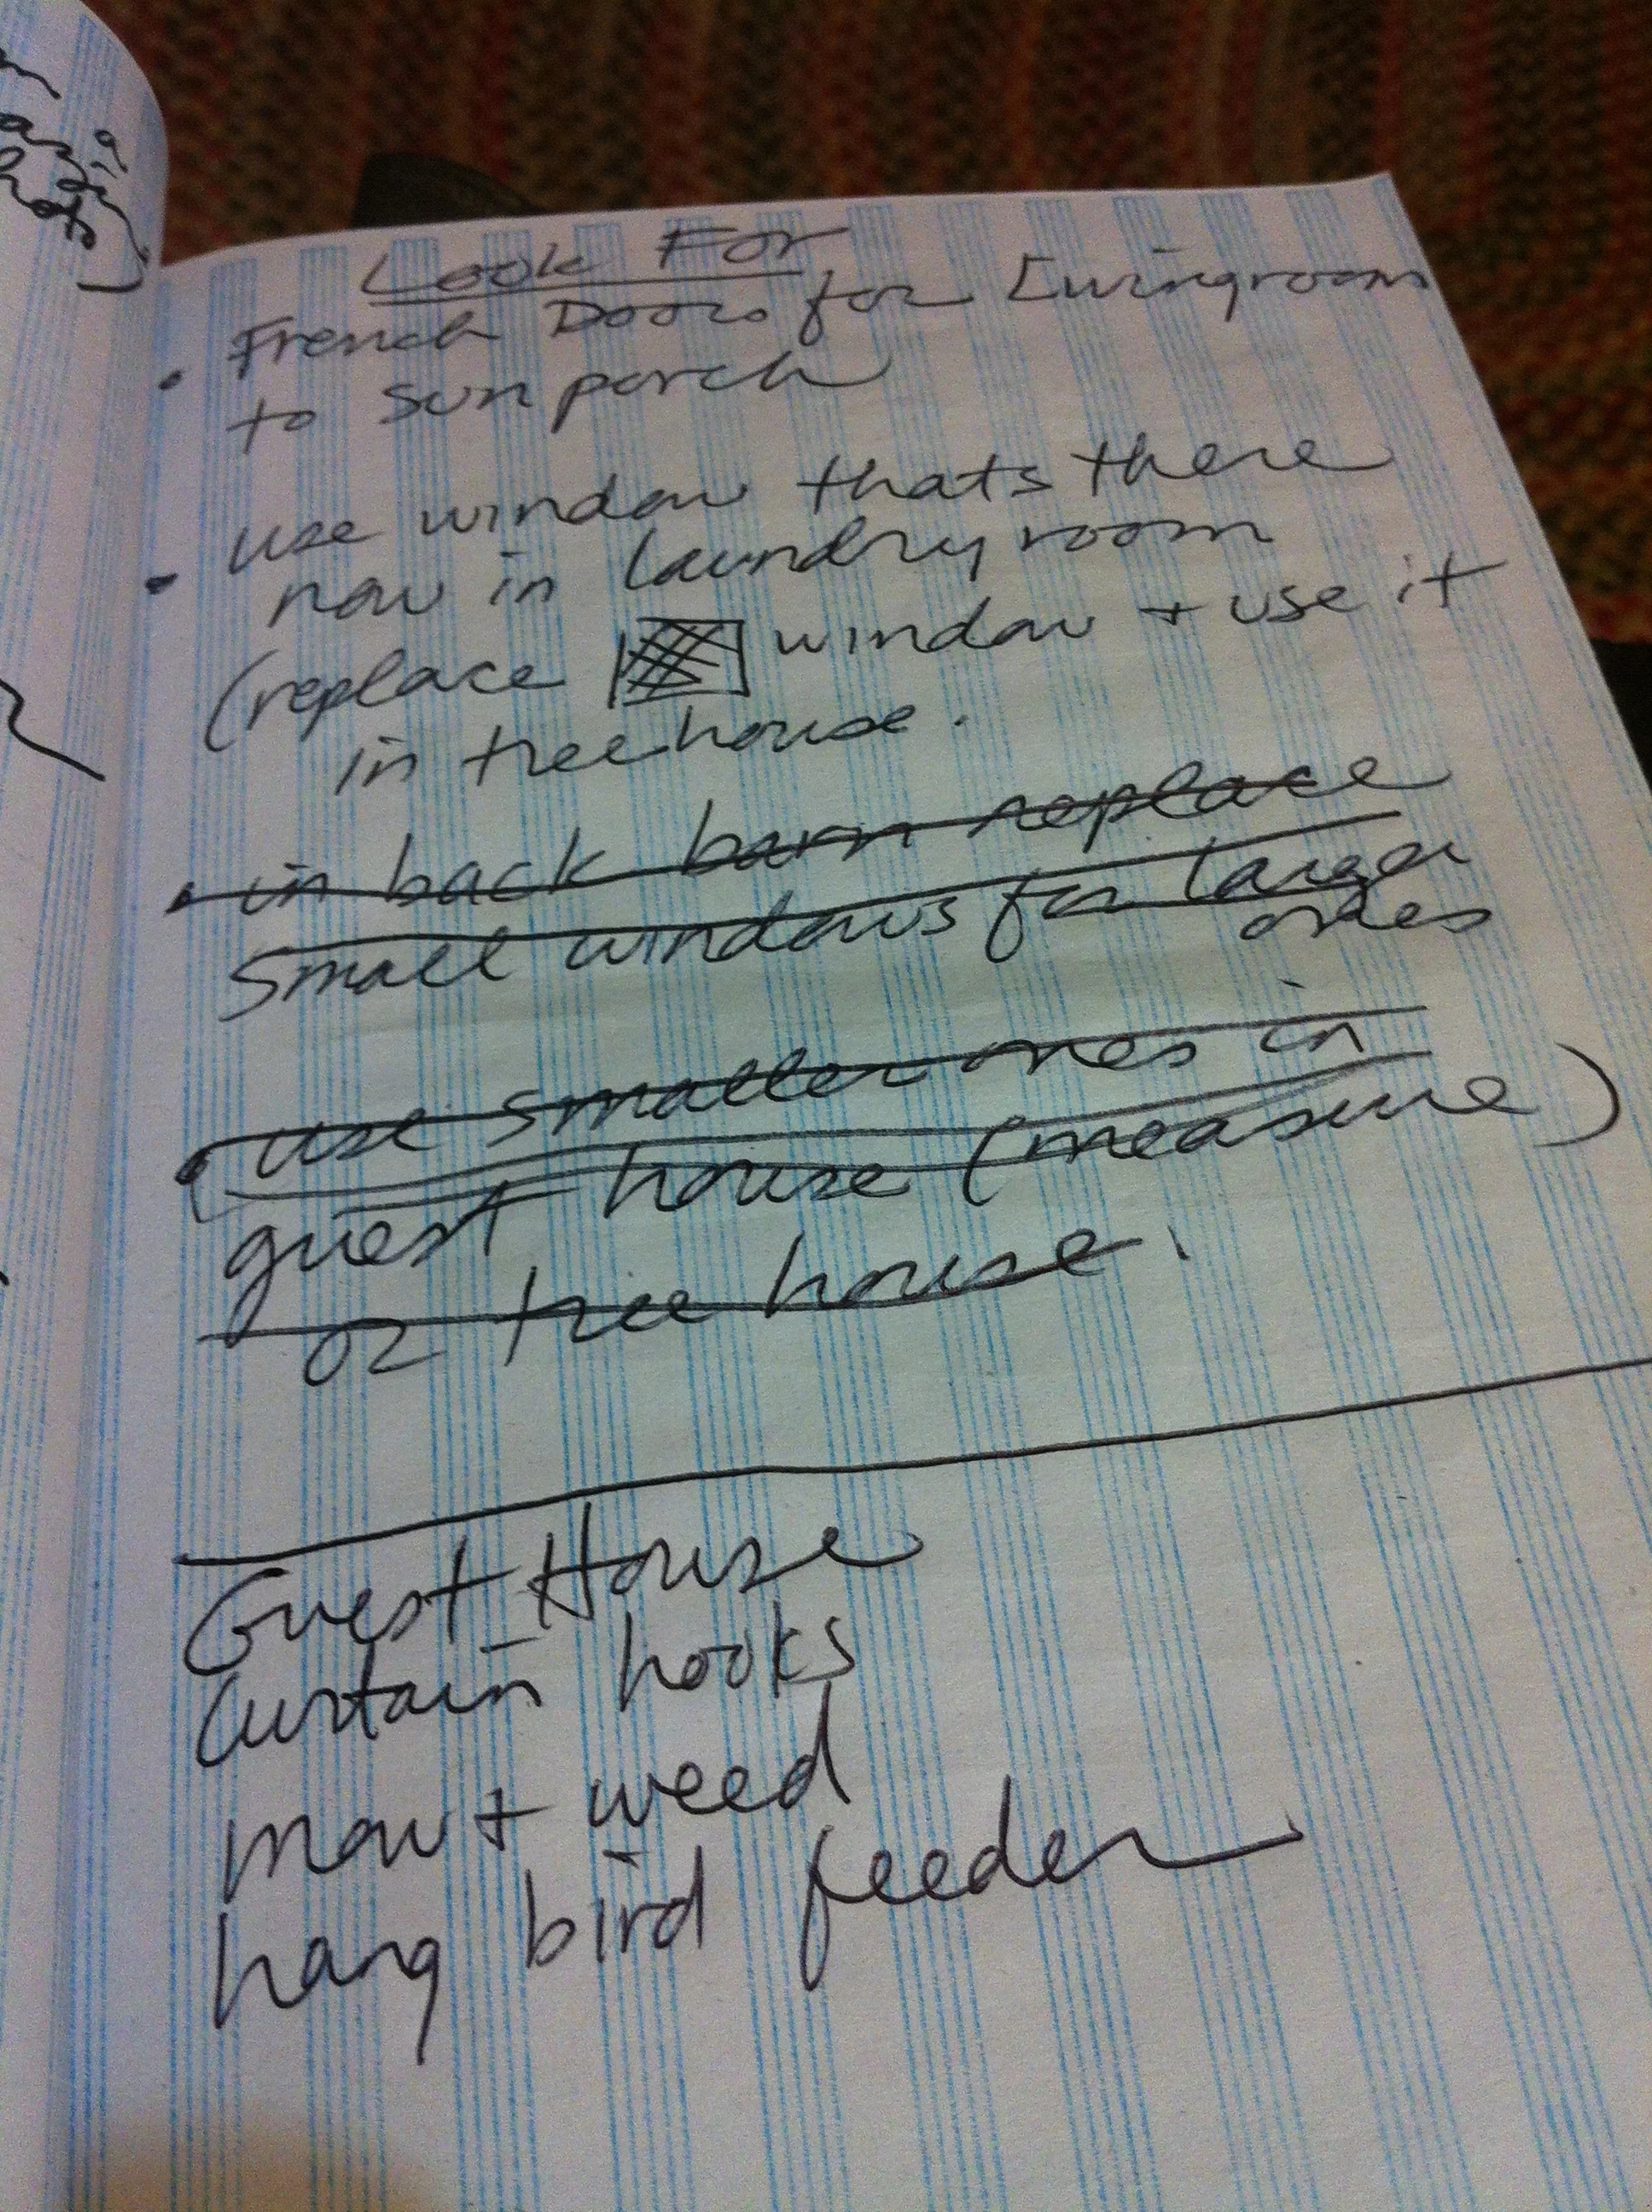 Look For
• French Doors for Livingroom
to sun porch
• use window thats there
now in laundry room
(replace window + use it
in tree house.
• in back barn replace
small windows for larger
ones
• use smaller ones in
guest house (measure)
or tree house.
Guest House
Curtain hooks
mow + weed
hang bird feeder